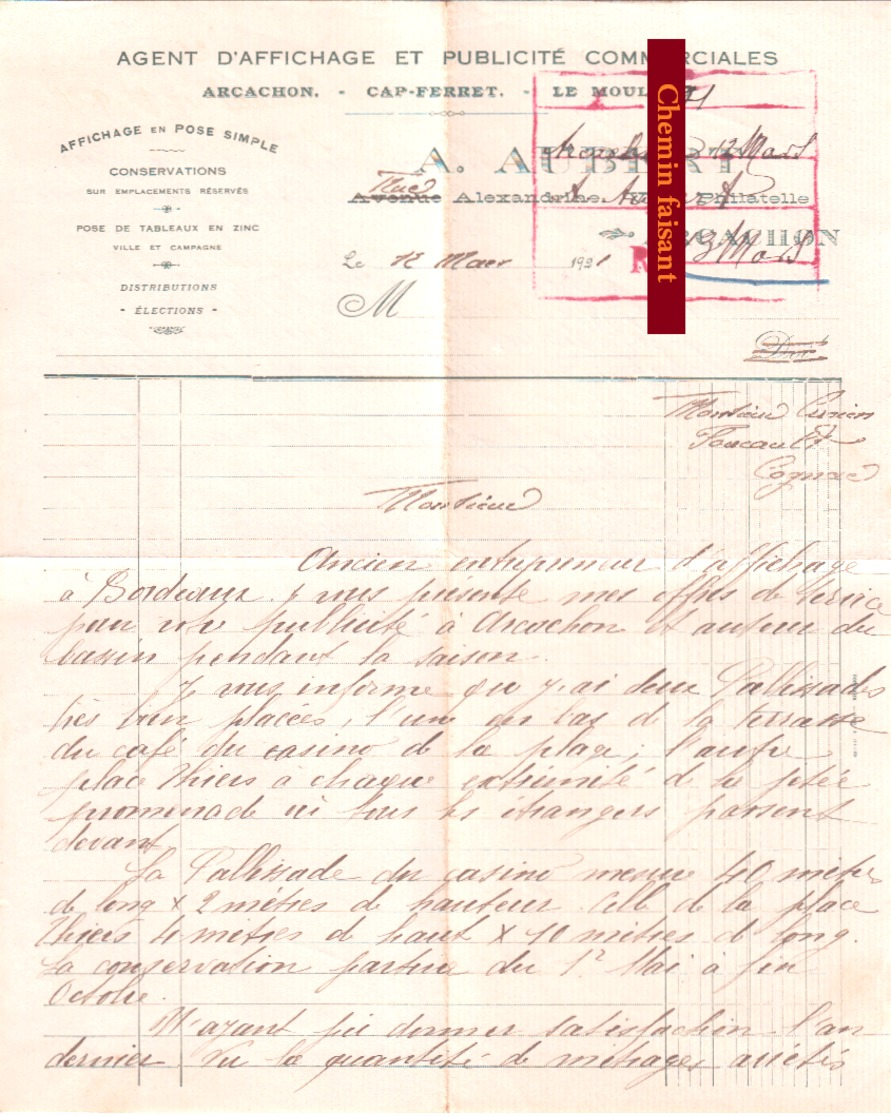 AGENT D'AFFICHAGE ET PUBLICITÉ COMMERCIALES
ARCACHON. - CAP-FERRET. - LE MOUL
Chemin faisant
AFFICHAGE EN POSE SIMPLE
CONSERVATIONS
SUR EMPLACEMENTS RÉSERVÉS
POSE DE TABLEAUX EN ZINC
VILLE ET CAMPAGNE
DISTRIBUTIONS
- ÉLECTIONS -
A. AUBERT
12 Mars
Rue
Avenue Alexandrine. Philatelle
ARCACHON
13 Mars
Le 12 Mars 1921
M
Doit
Monsieur
Foucault
Cognac
Monsieur
Ancien entrepreneur d'affichage
à Bordeaux. je vous présente mes offres de service
pour votre publicité à Arcachon et autour du
bassin pendant la saison.
Je vous informe que j'ai deux Pallissades
très bien placées, l'une en bas de la terrasse
du café du casino de la plage, l'autre
place Thiers à chaque extrémité de la jetée
promenade où tous les étrangers passent
devant
La Pallissade du casino mesure 40 mètres
de long x 2 mètres de hauteur. Celle de la place
Thiers 4 mètres de haut x 10 mètres de long.
La conservation partira du 1er Mai à fin
Octobre.
N'ayant pu donner satisfaction l'an
dernier. Vu la quantité de métrages arrêtés